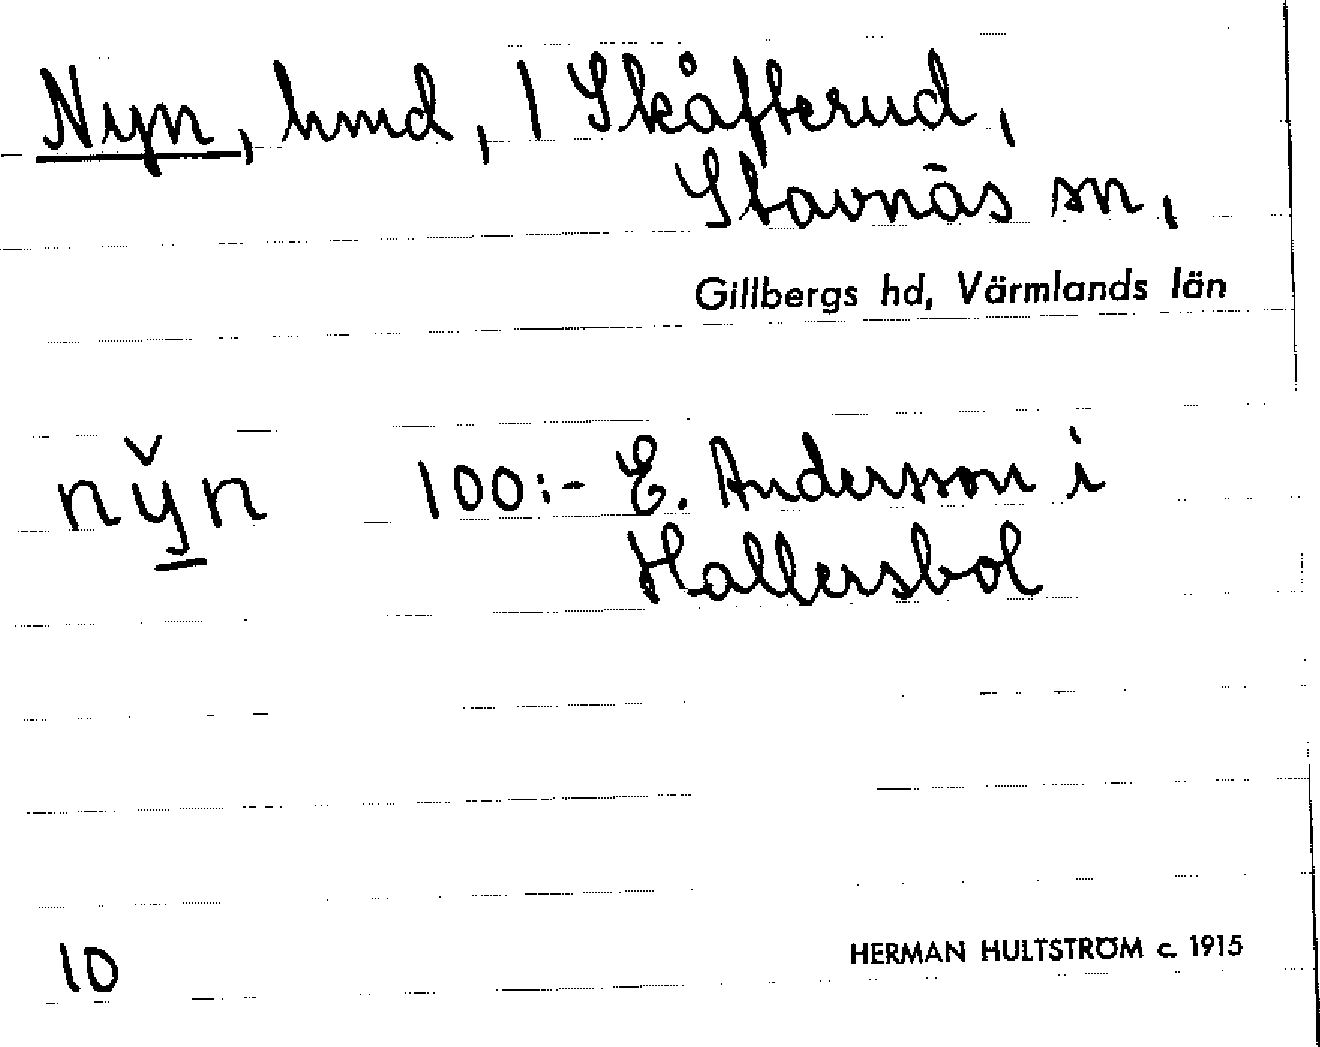 Nyn, hmd, 1 Skåfterud,
Stavnäs sn,
Gillbergs hd, Värmlands län
ny̌n 100:- E. Andersson i
Hallersbol
10
HERMAN HULTSTRÖM c. 1915